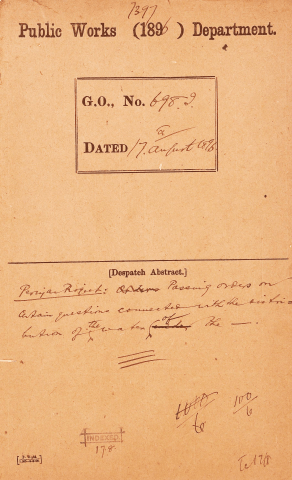 1397
Public Works (1896) Department.
G.O., No. 698. I.
DATED 17 August 1896
[Despatch Abstract.]
Periyar Project: Orders Passing orders on
certain questions connected with the distri
bution of the water of the —.
INDEXED
17.8
100
6